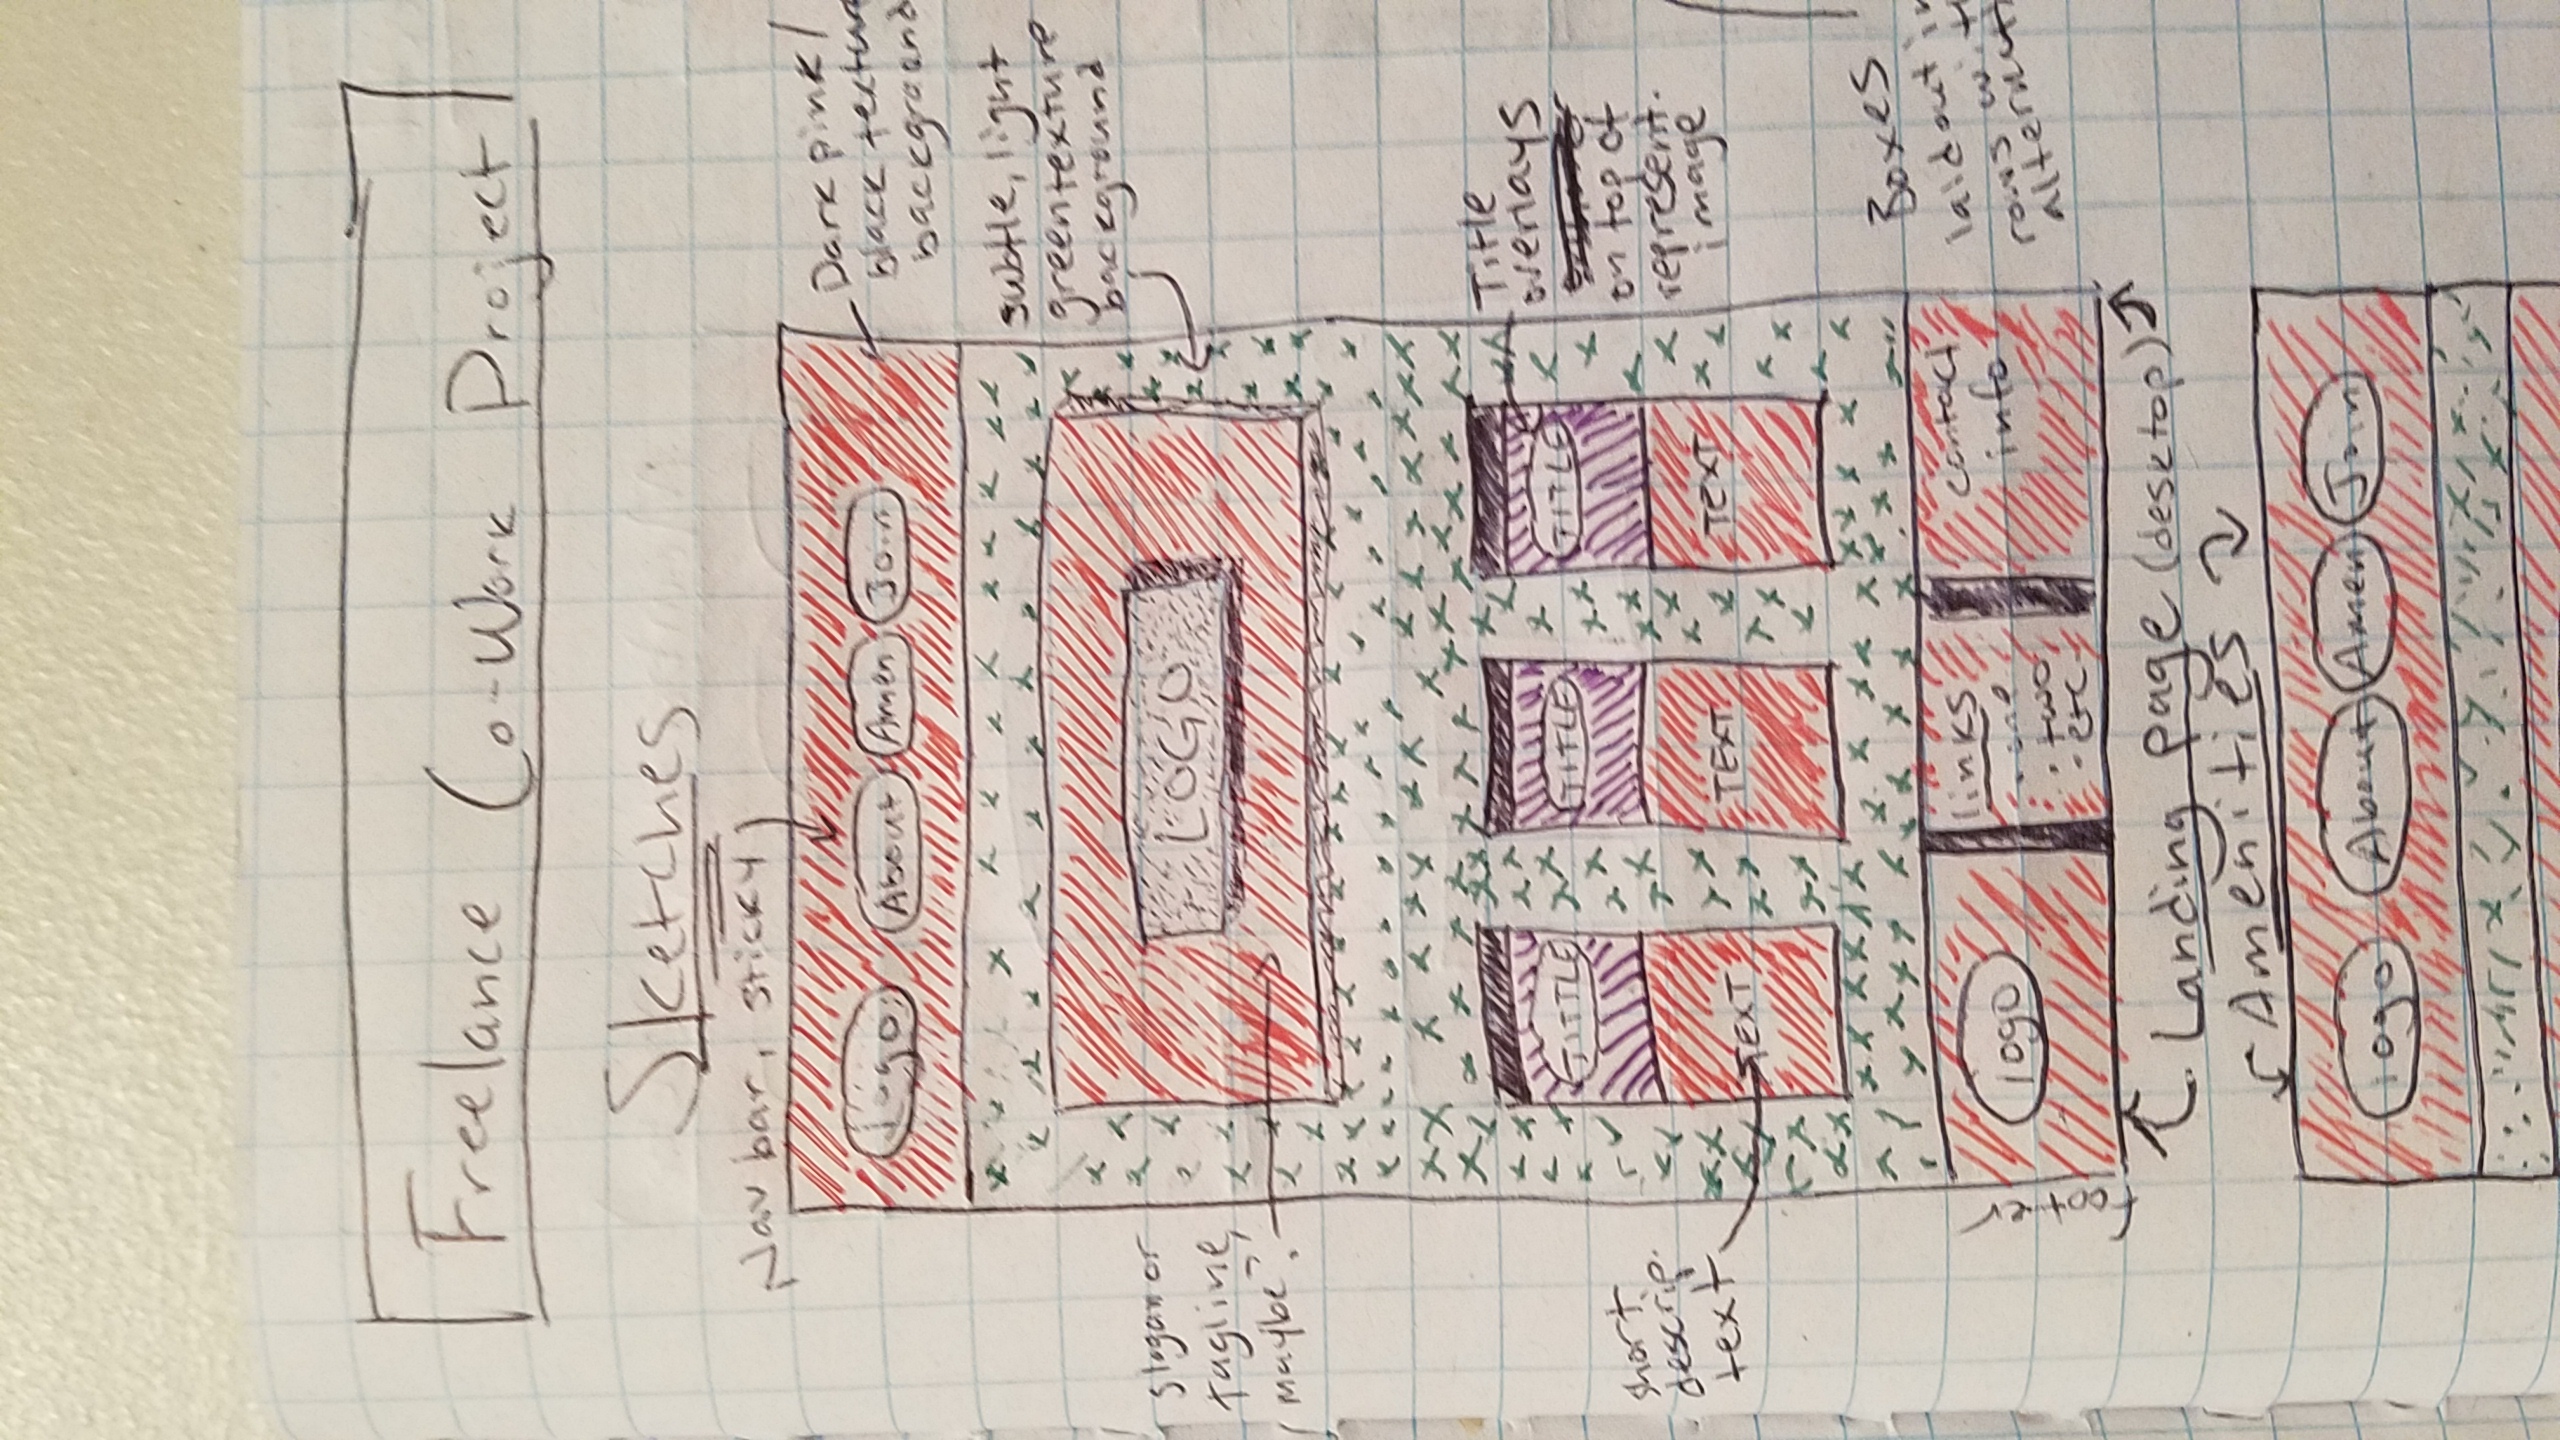 Freelance Co-Work Project
Sketches
Nav bar, sticky
logo
About
Amen
Join
Dark pink/
black textur
background
subtle, light
green texture
background
LOGO
slogan or
tagline,
maybe?
Title
overlays
on top of
represent.
image
TITTLE
TITLE
TITLE
short
descrip.
text
TEXT
TEXT
TEXT
Boxes
laid out in
rows wit
alternati
footer
logo
links
· one
· two
· etc
contact
info
Landing page (desktop)
Amenities
logo
About
Amen
Join